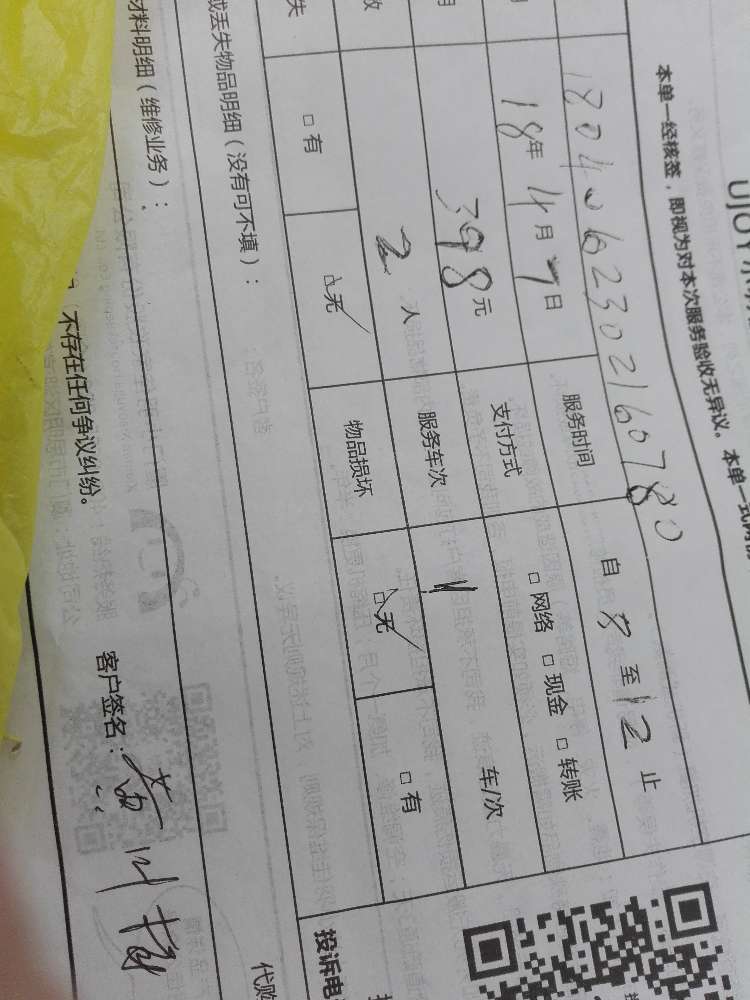 UJOY
本单一经核签，即视为对本次服务验收无异议。本单一式两
1804062302160780
18年4月7日 服务时间 自8至12止
398元 支付方式 □网络 □现金 □转账
2人 服务车次 1 车/次
失 □有 □无 物品损坏 □无 □有
或丢失物品明细（没有可不填）：
投诉电
代购
材料明细（维修业务）：
不存在任何争议纠纷。 客户签名：